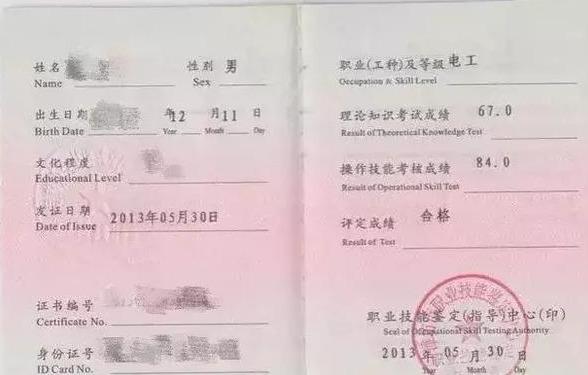 姓名 性别 男
Name Sex
出生日期 年12 月11 日
Birth Date Year Month Day
文化程度
Educational Level
发证日期 2013年05月30日
Date of Issue
证书编号
Certificate No.
身份证号
ID Card No.
职业(工种)及等级 电工
Occupation & Skill Level
理论知识考试成绩 67.0
Result of Theoretical Knowledge Test
操作技能考核成绩 84.0
Result of Operational Skill Test
评定成绩 合格
Result of Test
职业技能鉴定(指导)中心(印)
Seal of Occupational Skill Testing Authority
2013年 05 月 30 日
Year Month Day